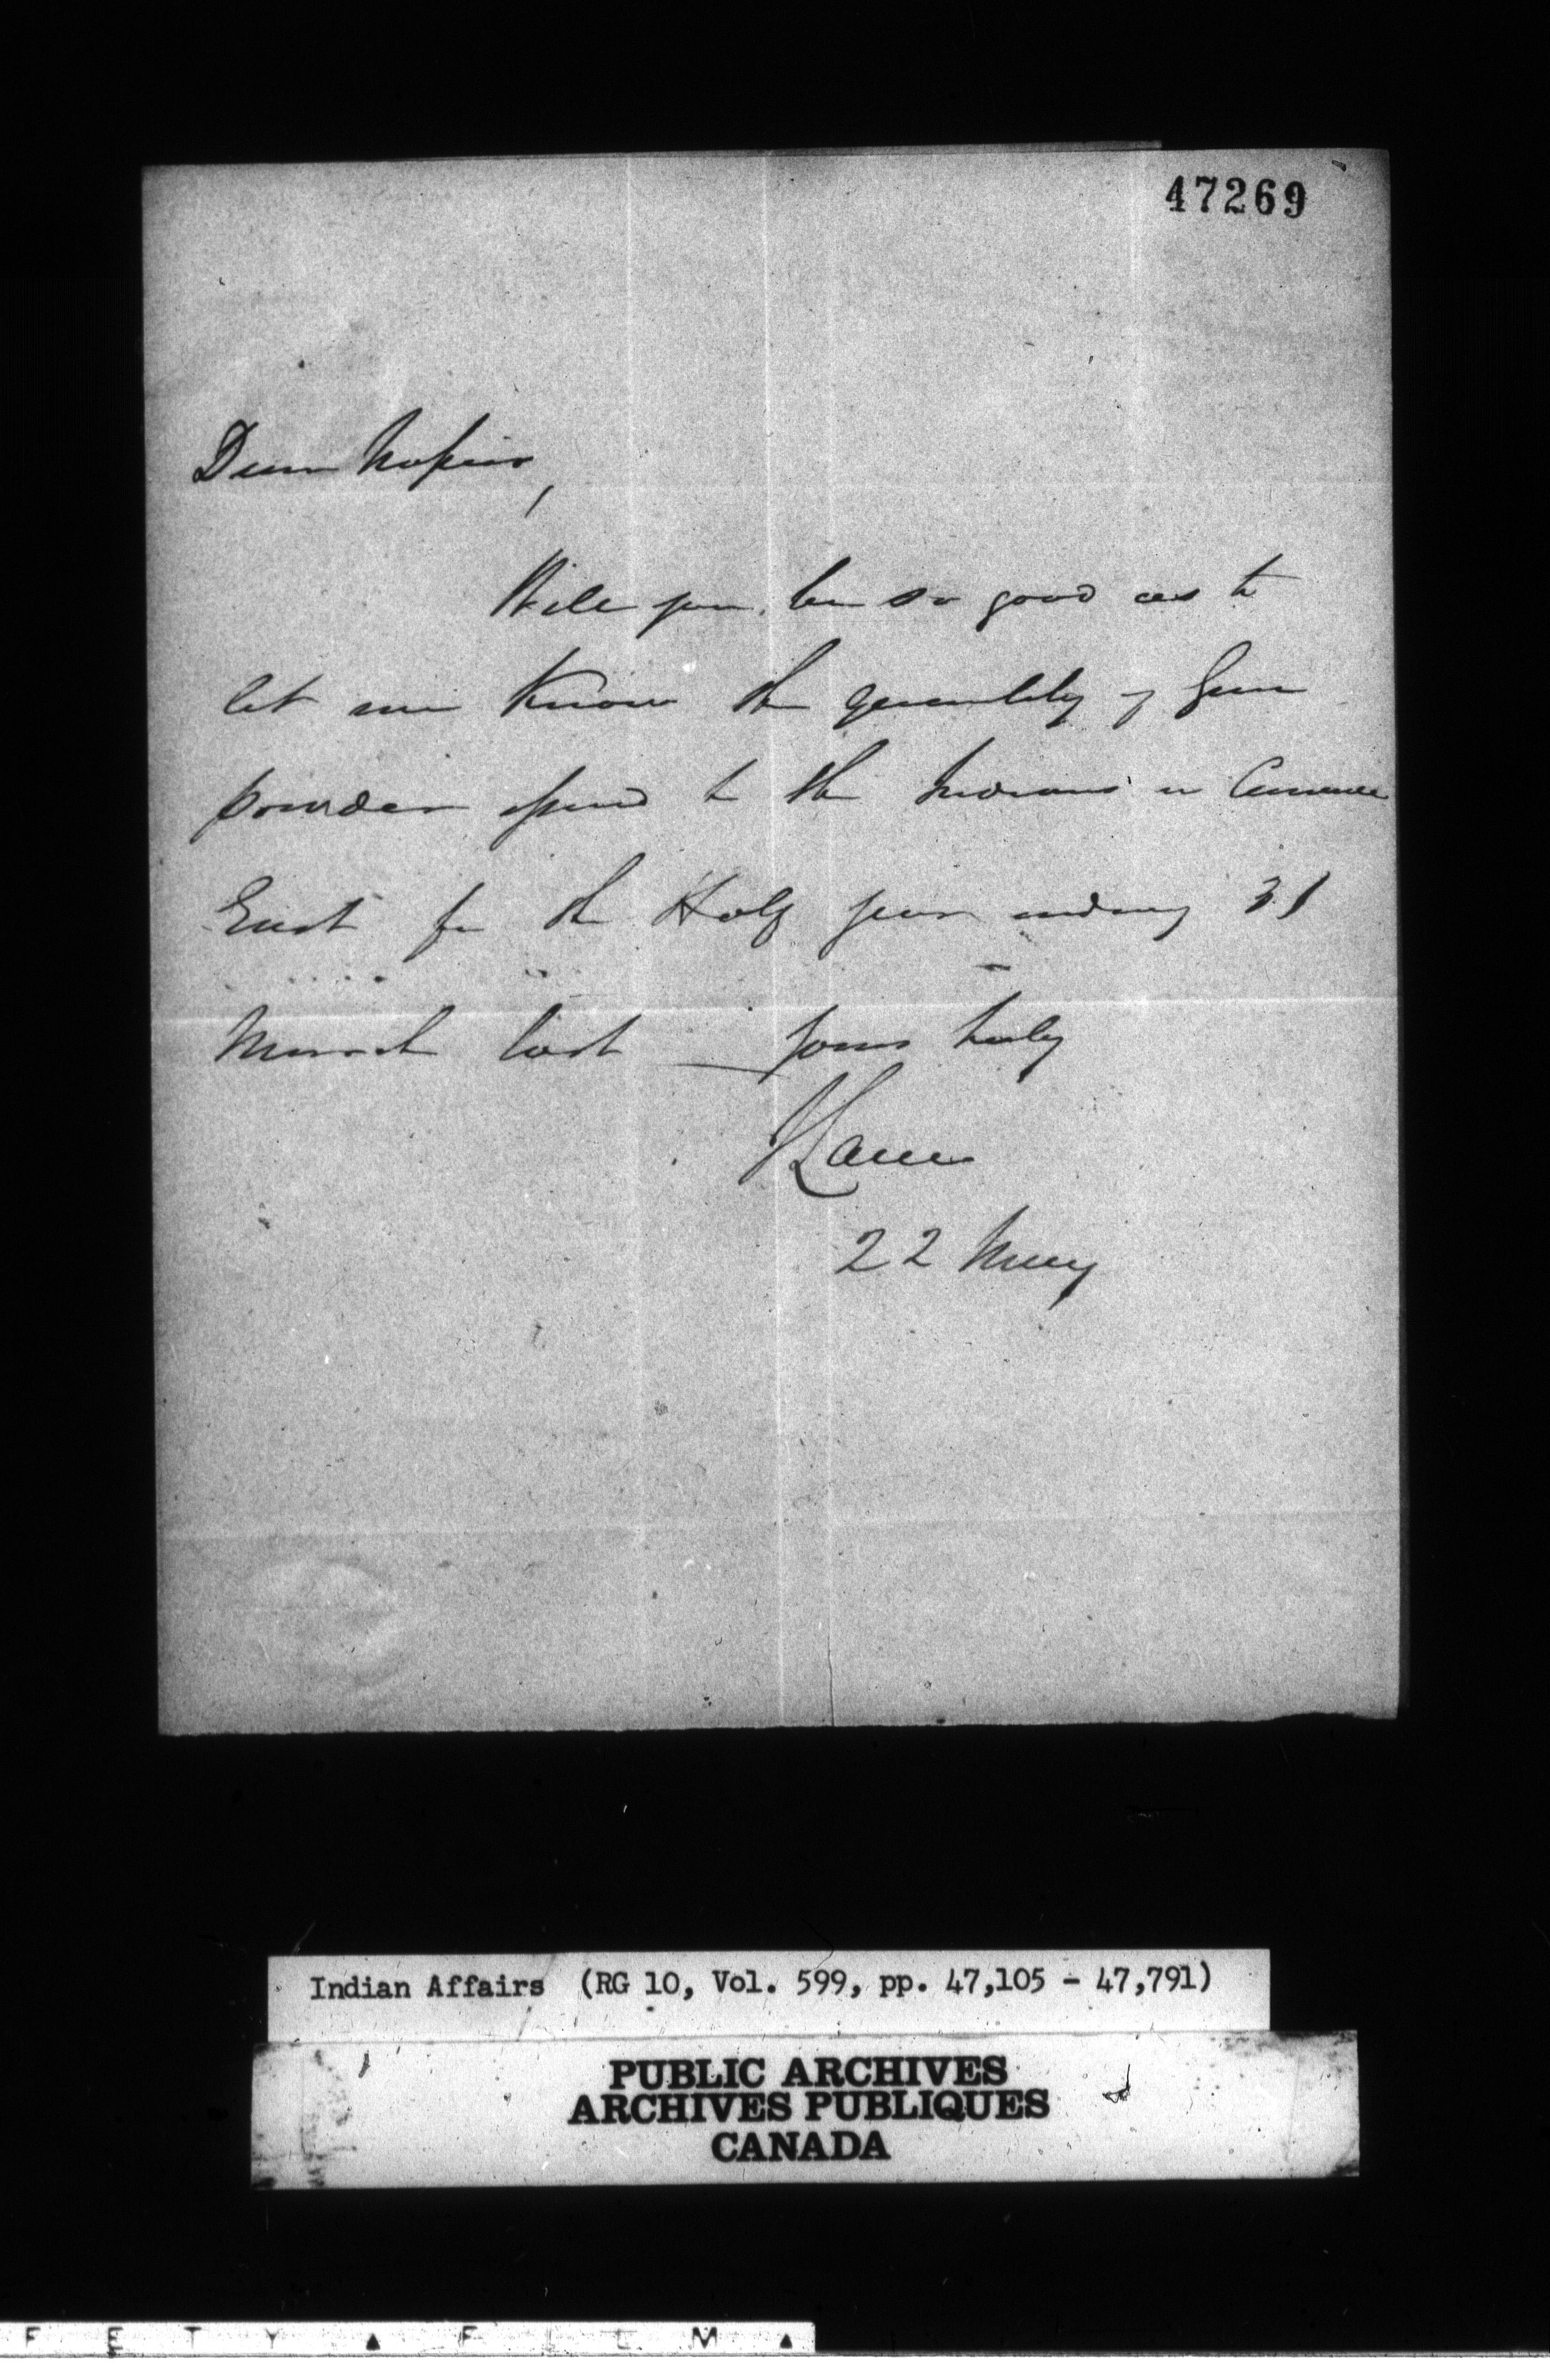 47269
Dear Napier,
Will you be so good as to
let me know the quantity of Gun
powder issued to the Indians in Canada
East for the Half year ending 31
March last _ yours truly
22 May
Indian Affairs (RG 10, Vol. 599, pp. 47,105 - 47,791)
PUBLIC ARCHIVES
ARCHIVES PUBLIQUES
CANADA
F E T Y ▲ F I L M ▲